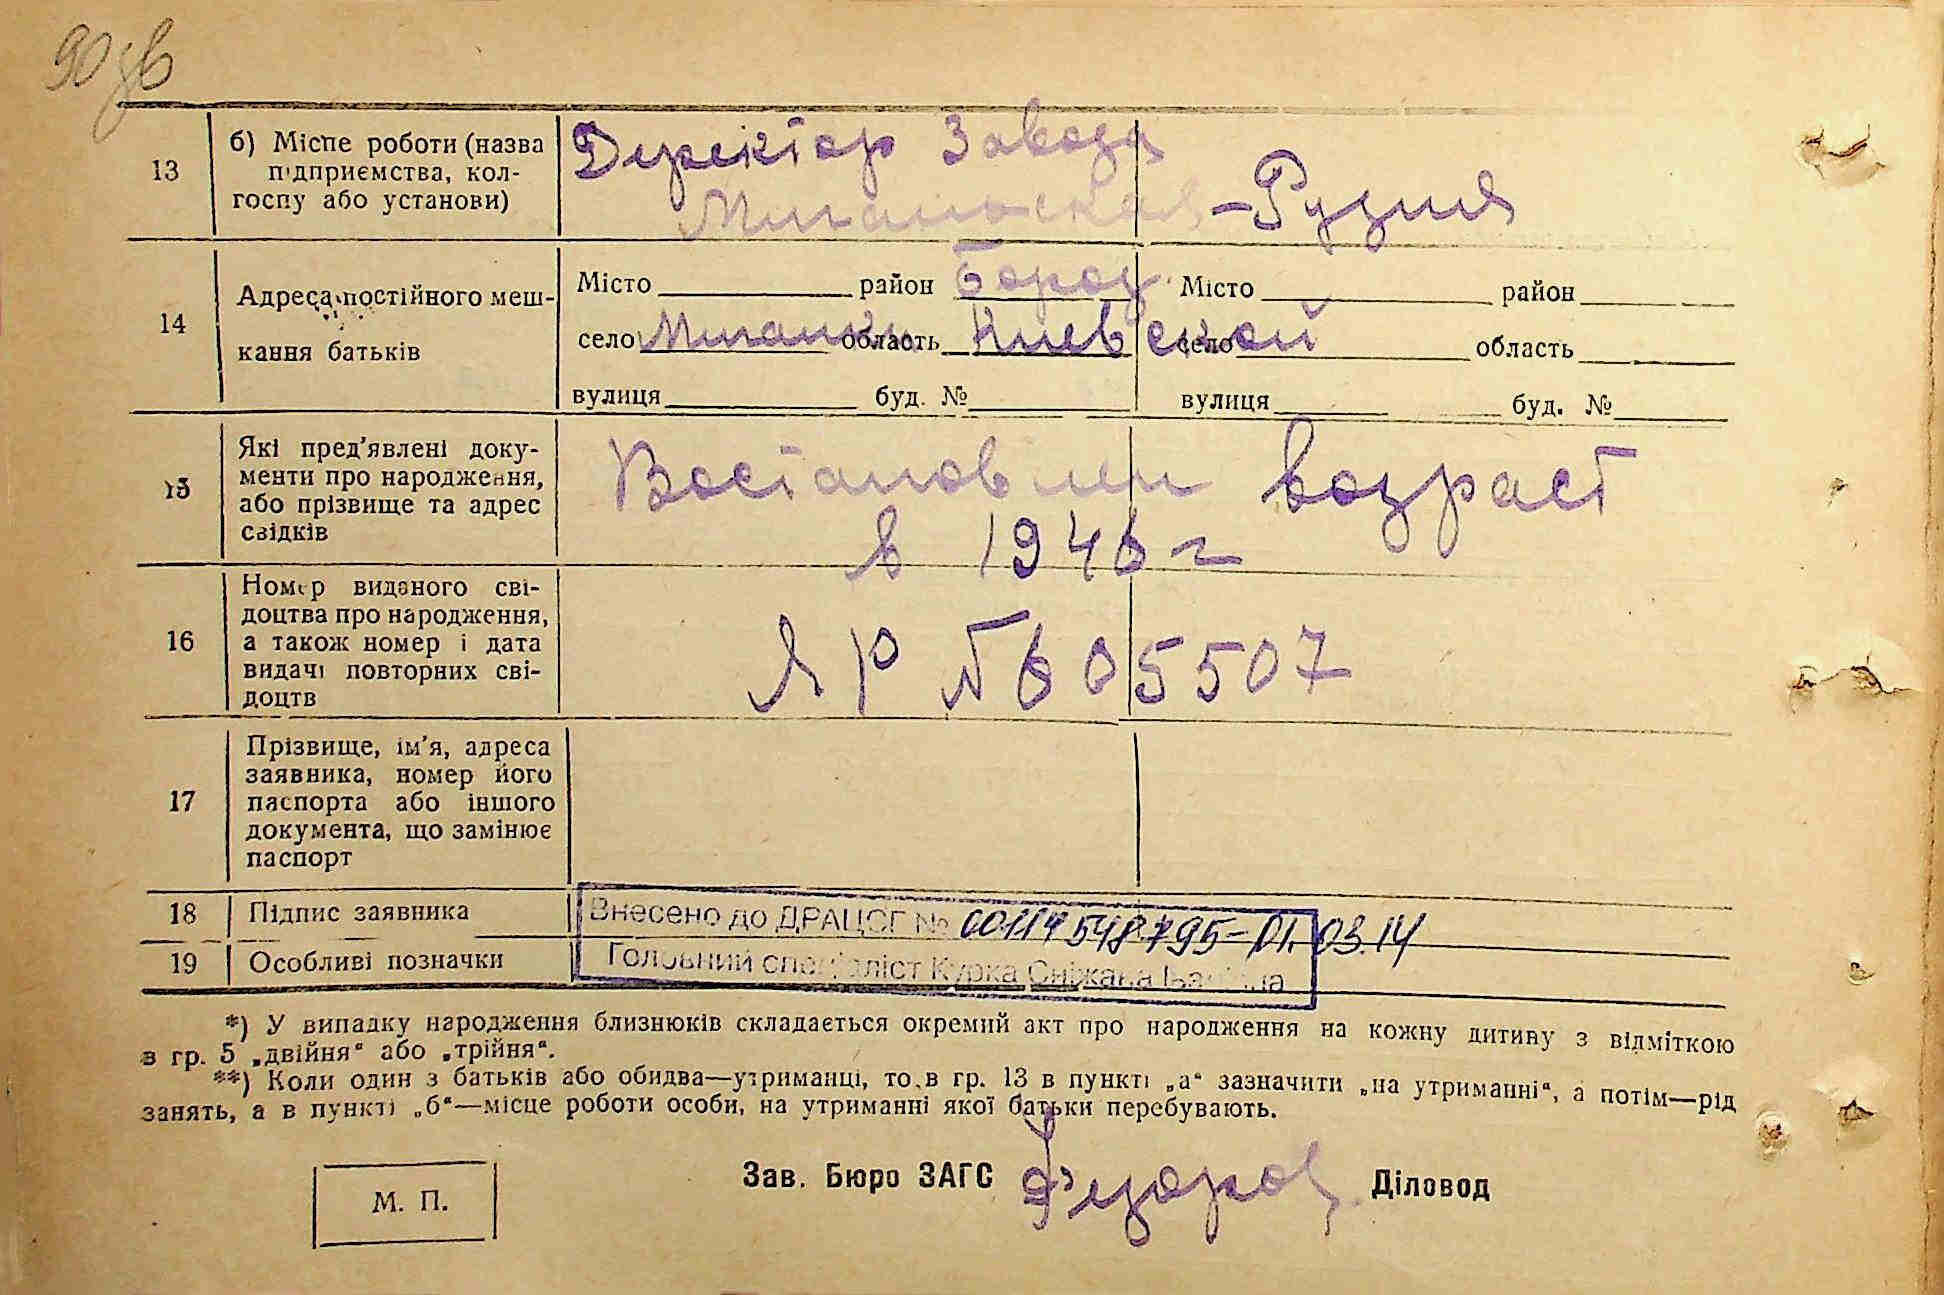 90зв
13
б) Місце роботи (назва
підприємства, кол-
госпу або установи)
Директор Завода
Миганьская - Рудня
14
Адреса постійного меш-
кання батьків
Місто район Бород. Місто район
село Миганьки область Киевской село область
вулиця буд. № вулиця буд. №
15
Які пред'явлені доку-
менти про народження,
або прізвище та адрес
свідків
Востановлен возраст
в 1946 г
16
Номер виданого сві-
доцтва про народження,
а також номер і дата
видачі повторних сві-
доцтв
ЯР №605507
17
Прізвище, ім'я, адреса
заявника, номер його
паспорта або іншого
документа, що замінює
паспорт
18 Підпис заявника
Внесено до ДРАЦСГ № 00114548795-01.03.14
19 Особливі позначки
Головний спеціаліст Курка Сніжана Іванівна
*) У випадку народження близнюків складається окремий акт про народження на кожну дитину з відміткою
в гр. 5 „двійня“ або „трійня“.
**) Коли один з батьків або обидва—утриманці, то в гр. 13 в пункті „а“ зазначити „на утриманні“, а потім—рід
занять, а в пункті „б“—місце роботи особи, на утриманні якої батьки перебувають.
М. П.
Зав. Бюро ЗАГС
Діловод